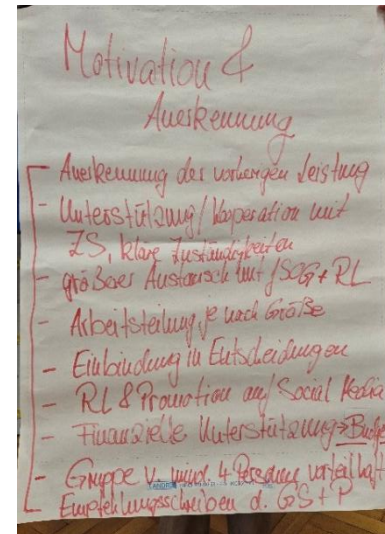 Motivation &
Anerkennung
- Anerkennung der vorherigen Leistung
- Unterstützung / Kooperation mit
ZS, klare Zuständigkeiten
- größerer Austausch mit SOG + RL
- Arbeitsteilung je nach Größe
- Einbindung in Entscheidungen
- RL & Promotion auf Social Media
- Finanzielle Unterstützung → Budge
- Gruppe v. mind. 4 Personen vorteilhaft
Empfehlungsschreiben d. GS + P